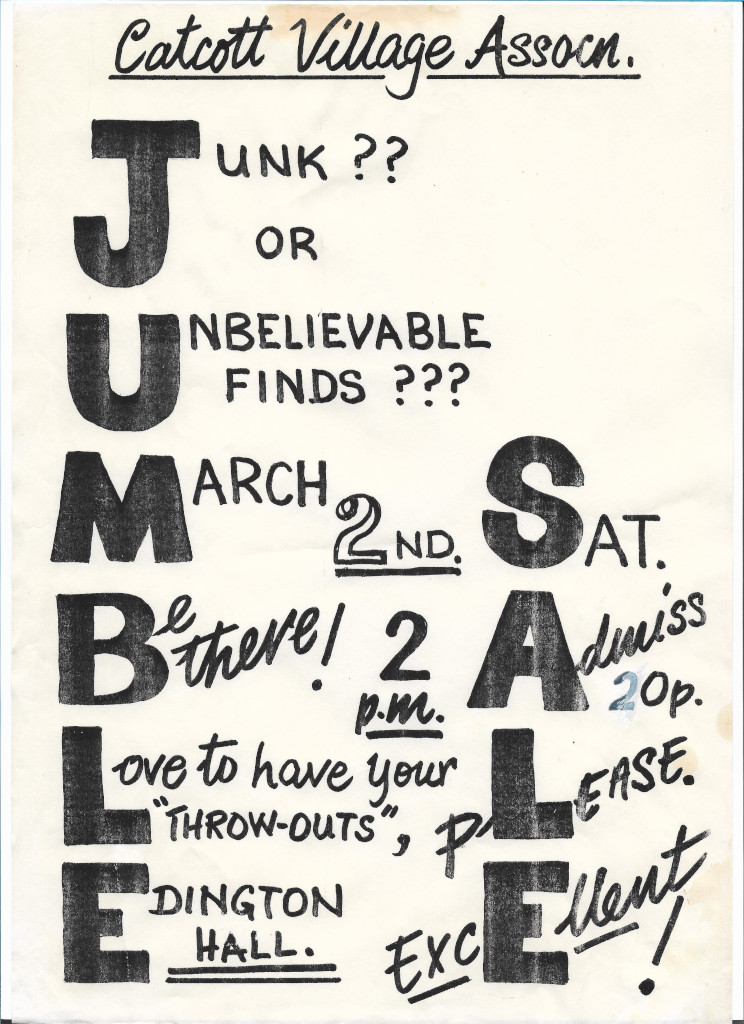 Catcott Village Assocn.
JUNK ??
OR
UNBELIEVABLE
FINDS ???
MARCH 2ND. SAT.
Be there! 2 p.m. Admiss 20p.
Love to have your
"THROW-OUTS", PLEASE.
EDINGTON
HALL. EXCEllent!